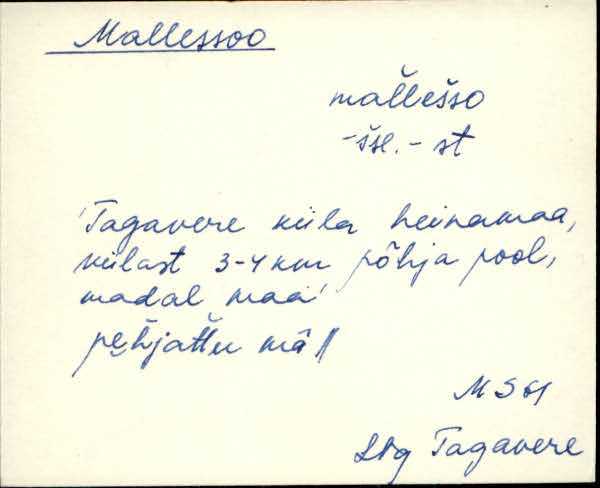 Mallessoo
mallešso
-šse. - st
'Tagavere küla heinamaa,
külast 3-4 km põhja pool,
madal maa'
pẹhjattu mâ ||
M S 61
Tagavere